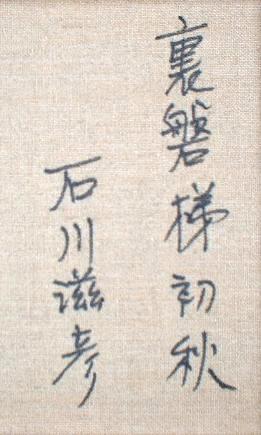 裏磐梯初秋
石川滋彦